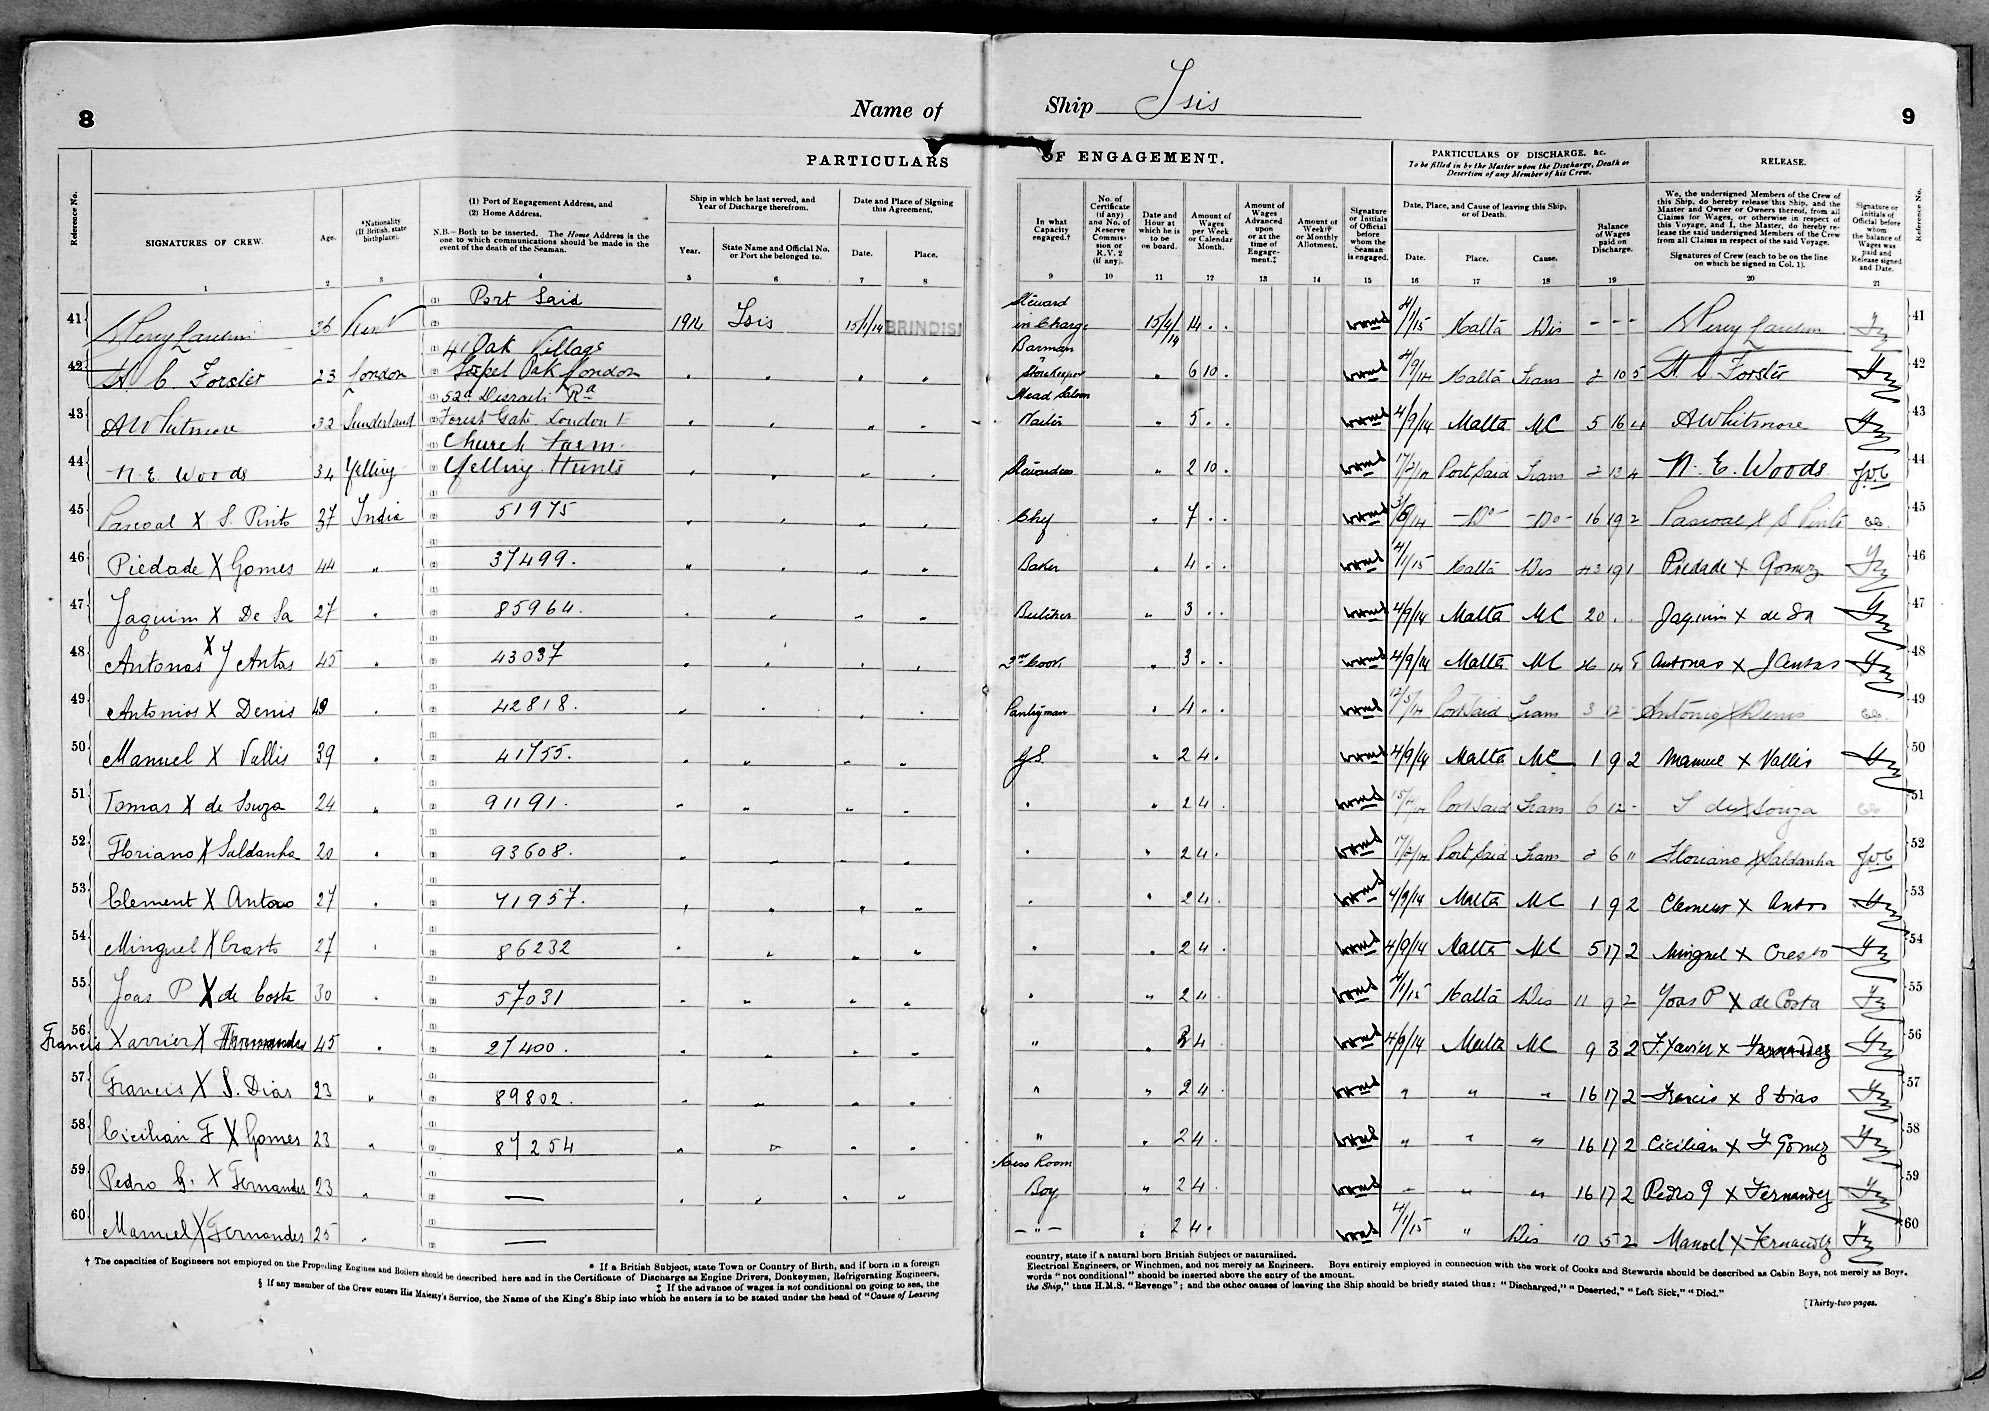 8
Name of
Ship Isis
9
PARTICULARS
OF ENGAGEMENT.
PARTICULARS OF DISCHARGE, &c.
To be filled in by the Master upon the Discharge, Death or
Desertion of any Member of his Crew.
RELEASE.
Reference No.
SIGNATURES OF CREW.
Age.
*Nationality
(If British, state
birthplace).
(1) Port of Engagement Address, and
(2) Home Address.
N.B.—Both to be inserted. The Home Address is the
one to which communications should be made in the
event of the death of the Seaman.
Ship in which he last served, and
Year of Discharge therefrom.
Year.
State Name and Official No.
or Port she belonged to.
Date and Place of Signing
this Agreement.
Date.
Place.
In what
Capacity
engaged.†
No. of
Certificate
(if any)
and No. of
Reserve
Commis-
sion or
R.V.2
(if any).
Date and
Hour at
which he is
to be
on board.
Amount of
Wages
per Week
or Calendar
Month.
Amount of
Wages
Advanced
upon
or at the
time of
Engage-
ment.‡
Amount of
Weekly
or Monthly
Allotment.
Signature
or Initials
of Official
before
whom the
Seaman
is engaged.
Date, Place, and Cause of leaving this Ship,
or of Death.
Date.
Place.
Cause.
Balance
of Wages
paid on
Discharge.
We, the undersigned Members of the Crew of
this Ship, do hereby release this Ship, and the
Master and Owner or Owners thereof, from all
Claims for Wages, or otherwise in respect of
this Voyage, and I, the Master, do hereby re-
lease the said undersigned Members of the Crew
from all Claims in respect of the said Voyage.
Signatures of Crew (each to be on the line
on which he signed in Col. 1).
Signature or
Initials of
Official before
whom
the balance of
Wages was
paid and
Release signed
and Date.
Reference No.
1 2 3 4 5 6 7 8 9 10 11 12 13 14 15 16 17 18 19 20 21
41 36 Kent Port Said 1914 Isis 15/1/14 BRINDISI Steward in Charge 14 . . 4/1/15 Malta Dis - - - 41
42 H C Forster 23 London 41 Oak Village Gospel Oak London Barman & Storekeeper 6 10 . 4/9/14 Malta Trans 2 10 5 H C Forster 42
43 A Whitmore 32 Sunderland 52a Disraeli Rd Forest Gate London E Head Saloon Waiter 5 . . 4/9/14 Malta MC 5 16 4 A Whitmore 43
44 N. E. Woods 34 Yelling Church Farm Yelling Hunts Stewardess 2 10 . 17/2/14 Port Said Trans 2 13 4 N. E. Woods 44
45 Pascoal X S. Pinto 37 India 51975 Chef 7 . . Do Do 16 19 2 Pascoal X S Pinto 45
46 Piedade X Gomes 44 " 37499. Baker 4 . . 4/1/15 Malta Dis 19 1 Piedade X Gomez 46
47 Jaquim X De Sa 27 85964. Butcher 3 . . 4/9/14 Malta MC 20 . . Jaquim X de Sa 47
48 Antonas X J Antas 45 43037 3rd Cook 3 . . 4/9/14 Malta MC 14 8 Antonas X J Antas 48
49 Antonios X Denis 42818. Pantryman 4 . . 12/5/14 Port Said Trans 3 12 - Antonio X Denis 49
50 Manuel X Vallis 39 41755. G.S. 2 4 . 4/9/14 Malta MC 1 9 2 Manuel X Vallis 50
51 Tomas X de Souza 24 " 91191. 2 4 Port Said Trans 6 12 - T de X Souza 51
52 Floriano X Saldanha 20 93608. 2 4 . 17/2/14 Port Said Trans 2 6 " Floriano X Saldanha 52
53 Clement X Antao 27 71957. 2 4 . 4/9/14 Malta MC 1 9 2 53
54 Minguel X Crasto 27 86232 2 4 . 4/9/14 Malta MC 5 17 2 Minguel X Crasto 54
55 Joas P X de Costa 30 57031 4/1/15 Malta Dis 11 9 2 Joas P X de Costa 55
56 Francis Xarrier X Fernandes 45 27400. 2 4 4/9/14 Malta MC 9 3 2 F Xavier X Fernandez 56
57 Francis X S. Dias 23 " 89802. " 2 4 " " " 16 17 2 Francis X S Dias 57
58 Cicilian F X Gomes 23 " 87254 " 2 4 . " " " 16 17 2 Cicilian X F Gomez 58
59 Pedro G. X Fernandes 23 — Mess Room Boy 2 4 . " " " 16 17 2 Pedro G X Fernandez 59
60 Manuel X Fernandes 25 — - " - 2 4 . 4/1/15 " Dis 10 5 2 Manoel X Fernandez 60
* If a British Subject, state Town or Country of Birth, and if born in a foreign
country, state if a natural born British Subject or naturalized.
† The capacities of Engineers not employed on the Propelling Engines and Boilers should be described here and in the Certificate of Discharge as Engine Drivers, Donkeymen, Refrigerating Engineers,
Electrical Engineers, or Winchmen, and not merely as Engineers. Boys entirely employed in connection with the work of Cooks and Stewards should be described as Cabin Boys, not merely as Boys.
‡ If the advance of wages is not conditional on going to sea, the
words "not conditional" should be inserted above the entry of the amount.
§ If any member of the Crew enters His Majesty's Service, the Name of the King's Ship into which he enters is to be stated under the head of "Cause of Leaving
the Ship," thus H.M.S. "Revenge"; and the other causes of leaving the Ship should be briefly stated thus: "Discharged," "Deserted," "Left Sick," "Died."
[Thirty-two pages.